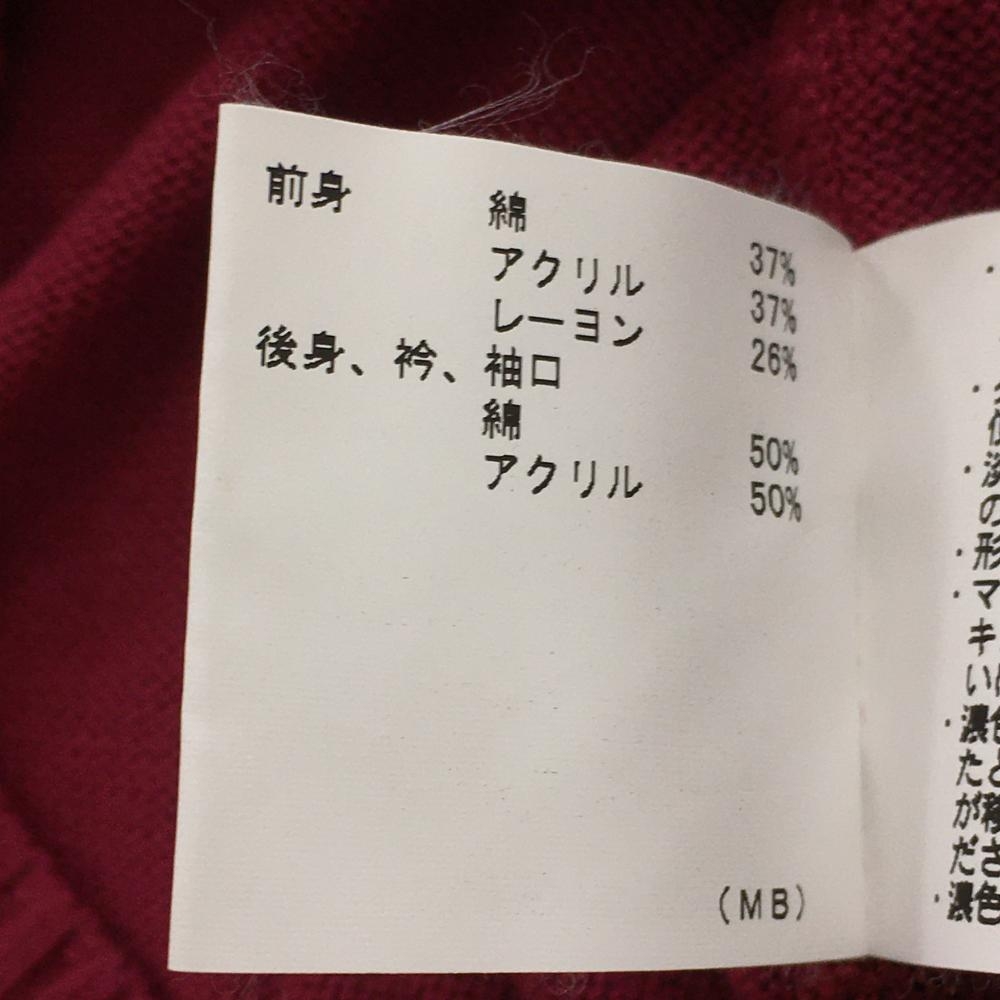 前身 綿 37%
アクリル 37%
レーヨン 26%
後身、衿、袖口
綿 50%
アクリル 50%
(MB)
の
形
・マ
キ
い
・濃色
たと
が移
ださ
・濃色